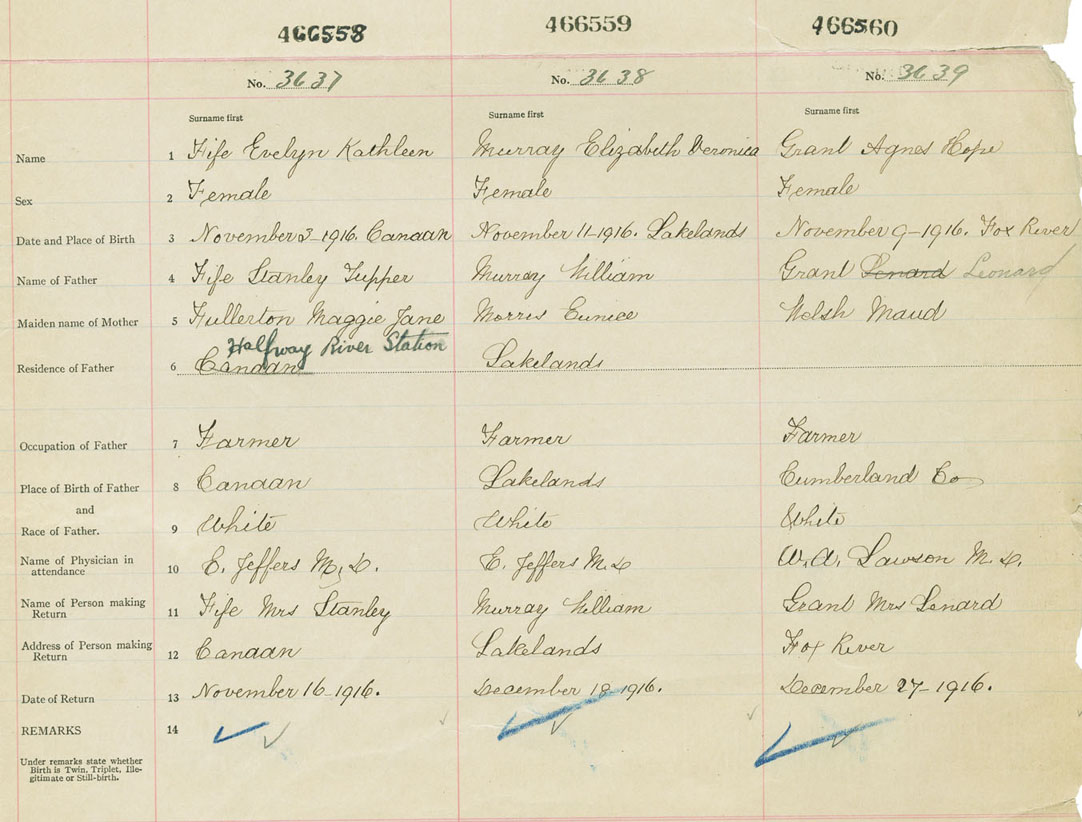 466558 466559 466560
No. 3637 No. 3638 No. 3639
Surname first Surname first Surname first
Name 1 Fife Evelyn Kathleen Murray Elizabeth Veronica Grant Agnes Hope
Sex 2 Female Female Female
Date and Place of Birth 3 November 3-1916. Canaan November 11-1916. Lakelands November 9-1916. Fox River
Name of Father 4 Fife Stanley Tupper Murray William Grant Lenard Leonard
Maiden name of Mother 5 Fullerton Maggie Jane Morris Eunice Welsh Maud
Halfway River Station
Residence of Father 6 Canaan Lakelands
Occupation of Father 7 Farmer Farmer Farmer
Place of Birth of Father 8 Canaan Lakelands Cumberland Co
and
Race of Father. 9 White White White
Name of Physician in
attendance 10 E. Jeffers M.D. E. Jeffers M.D W.A. Lawson M.D.
Name of Person making
Return 11 Fife Mrs Stanley Murray William Grant Mrs Lenard
Address of Person making
Return 12 Canaan Lakelands Fox River
Date of Return 13 November 16-1916. December 18 1916. December 27-1916.
REMARKS 14
Under remarks state whether
Birth is Twin, Triplet, Ille-
gitimate or Still-birth.